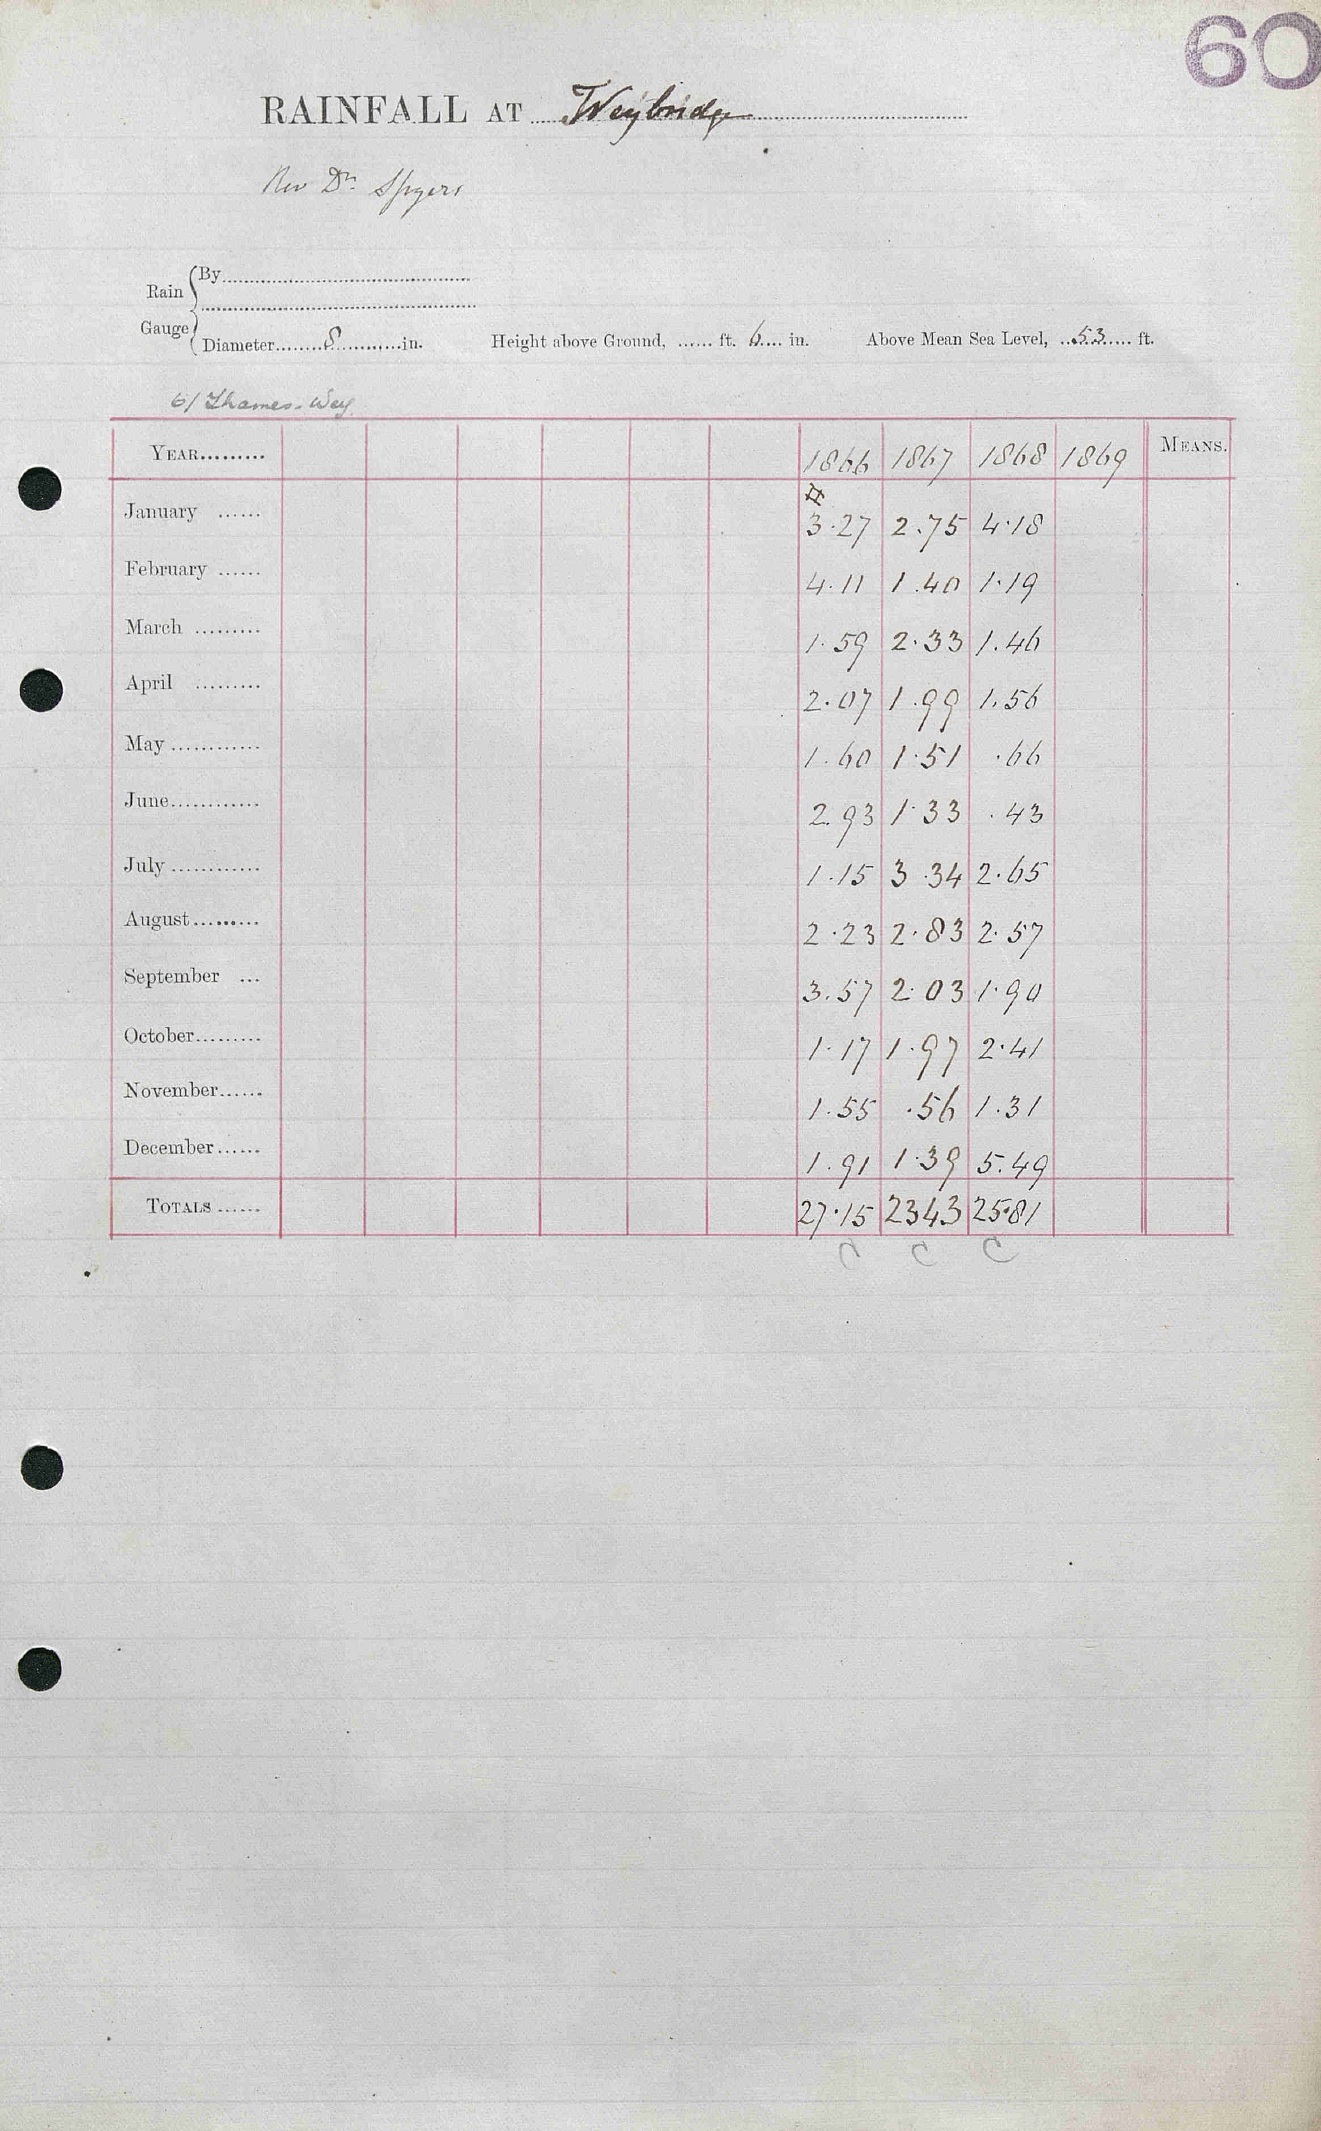 60
RAINFALL AT Weybridge
Rev Dr. Spyers
Rain Gauge
By
Diameter........8............in. Height above Ground, ...... ft. 6.... in. Above Mean Sea Level, ..53..... ft.
61 Thames-Wey
YEAR......... 1866 1867 1868 1869 MEANS.
¤
January ...... 3.27 2.75 4.18
February ...... 4.11 1.40 1.19
March ......... 1.59 2.33 1.46
April ......... 2.07 1.99 1.56
May ............ 1.60 1.51 .66
June............ 2.93 1.33 .43
July ............ 1.15 3.34 2.65
August......... 2.23 2.83 2.57
September ... 3.57 2.03 1.90
October......... 1.17 1.97 2.41
November...... 1.55 .56 1.31
December...... 1.91 1.39 5.49
TOTALS ...... 27.15 2343 25.81
C C C